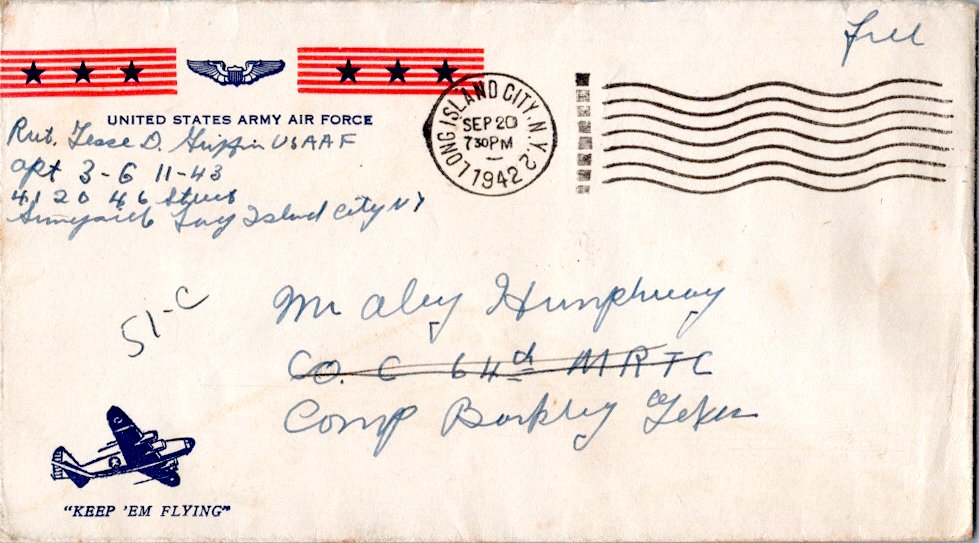 Free
UNITED STATES ARMY AIR FORCE
LONG ISLAND CITY, N.Y. 2
SEP 20
7 30 PM
1942
Pvt. Jesse D. Griffin USAAF
apt 3-G 11-43
4120 46 Street
Sunnyside Long Island City NY
51-C
Mr Aley Humphrey
Co. C 64th MRTC
Camp Barkley Texas
"KEEP 'EM FLYING"